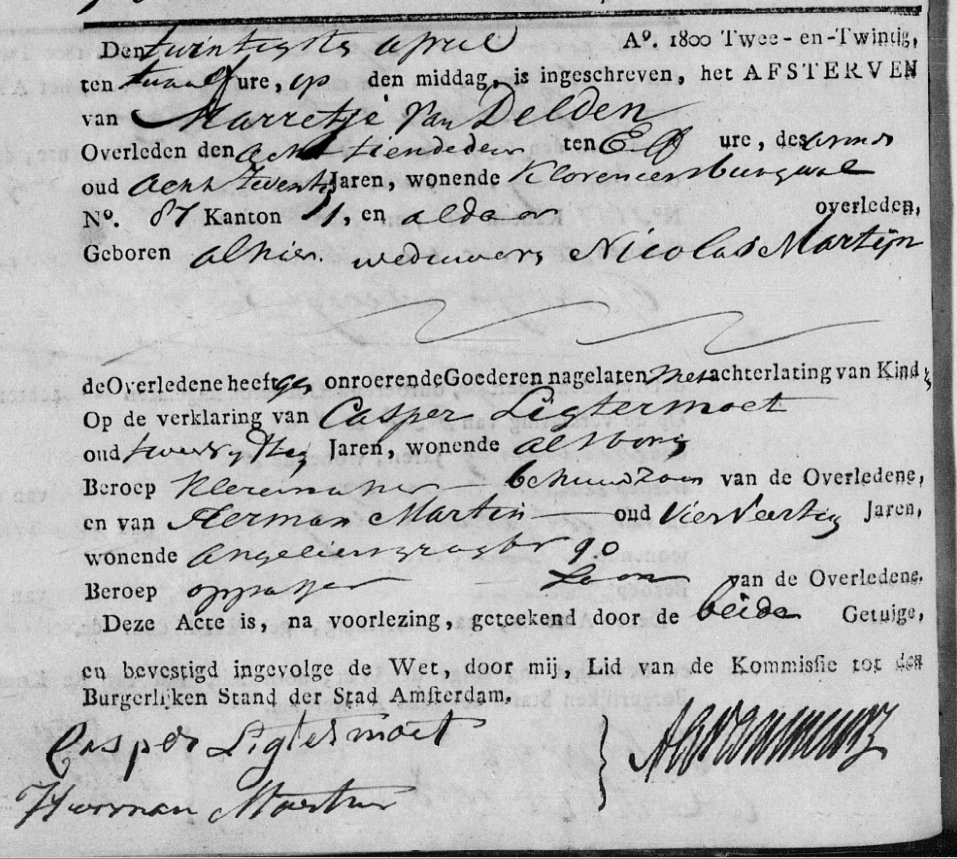 Den twintigste april Aº. 1800 Twee-en-Twintig,
ten twaalf ure, op den middag, is ingeschreven, het AFSTERVEN
van Marretje van Delden
Overleden den acht tiende dezer ten Elf ure, des
oud acht Zeventig Jaren, wonende
Nº. 87 Kanton 31, en aldaar overleden,
Geboren alhier. weduwe Nicolas Martijn
de Overledene heeft ge onroerende Goederen nagelaten met achterlating van Kind
Op de verklaring van Casper Ligtermoet
oud twee vyftig Jaren, wonende
Beroep Kleermaker behuwdzoon van de Overledene,
en van Herman Martin oud Vier Veertig Jaren,
wonende Angeliersgragt 90
Beroep oppasser Zoon van de Overledene.
Deze Acte is, na voorlezing, geteekend door de beide Getuige,
en bevestigd ingevolge de Wet, door mij, Lid van de Kommissie tot den
Burgerlijken Stand der Stad Amsterdam.
Casper Ligtermoet
Herman Martin